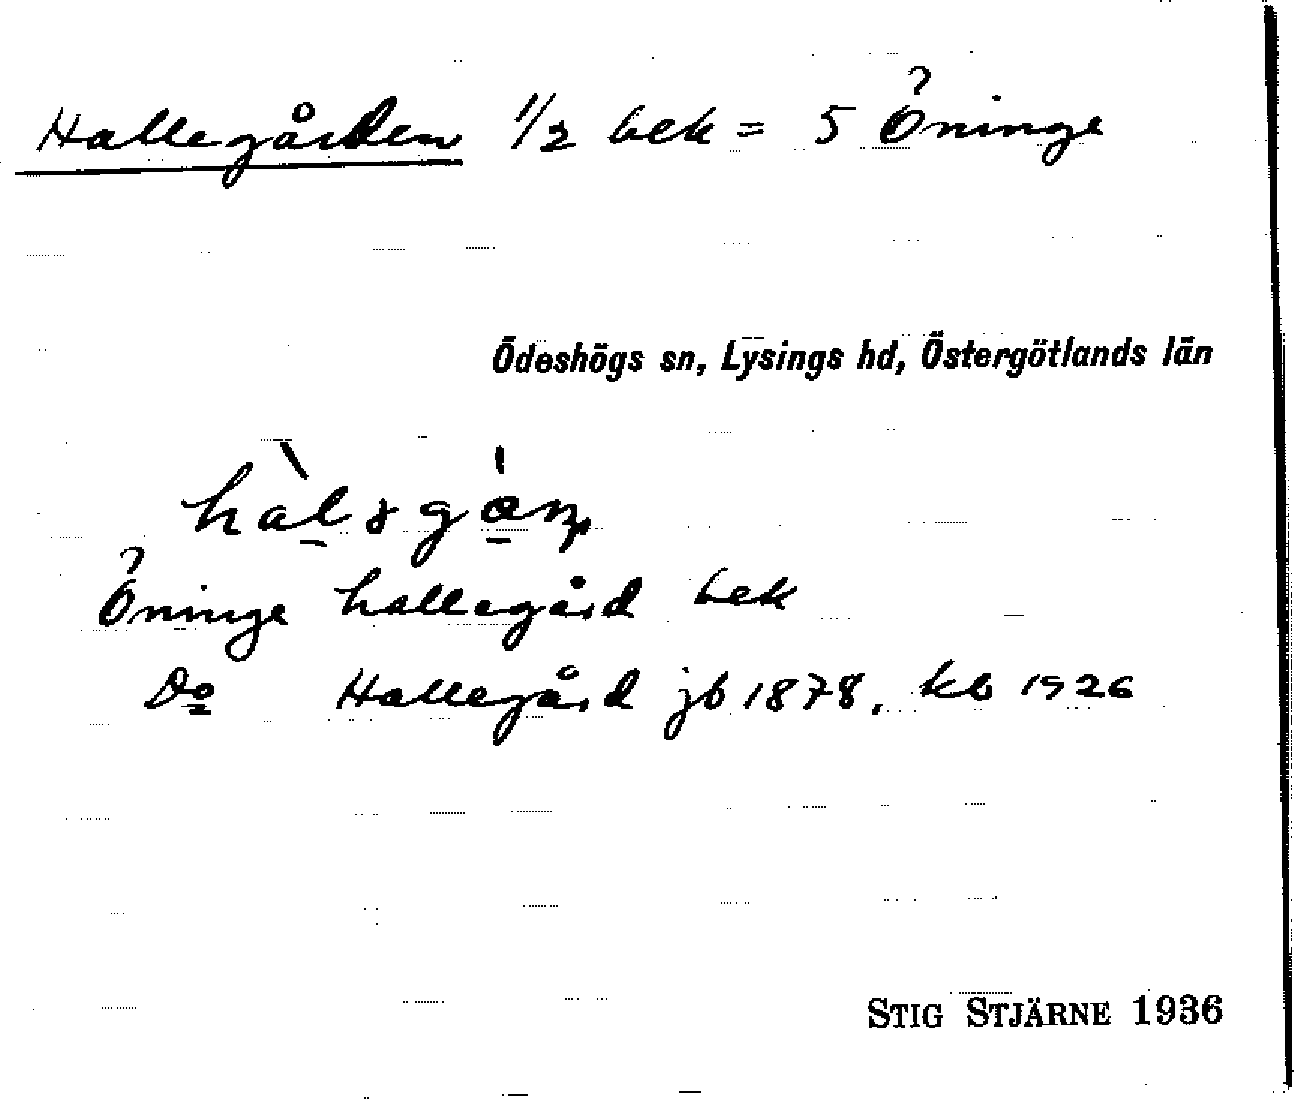 Hallegården 1/2 bek = 5 Öninge
Ödeshögs sn, Lysings hd, Östergötlands län
Öninge hallegård bek
Do Hallegård jb 1878, kb 1926
STIG STJÄRNE 1936